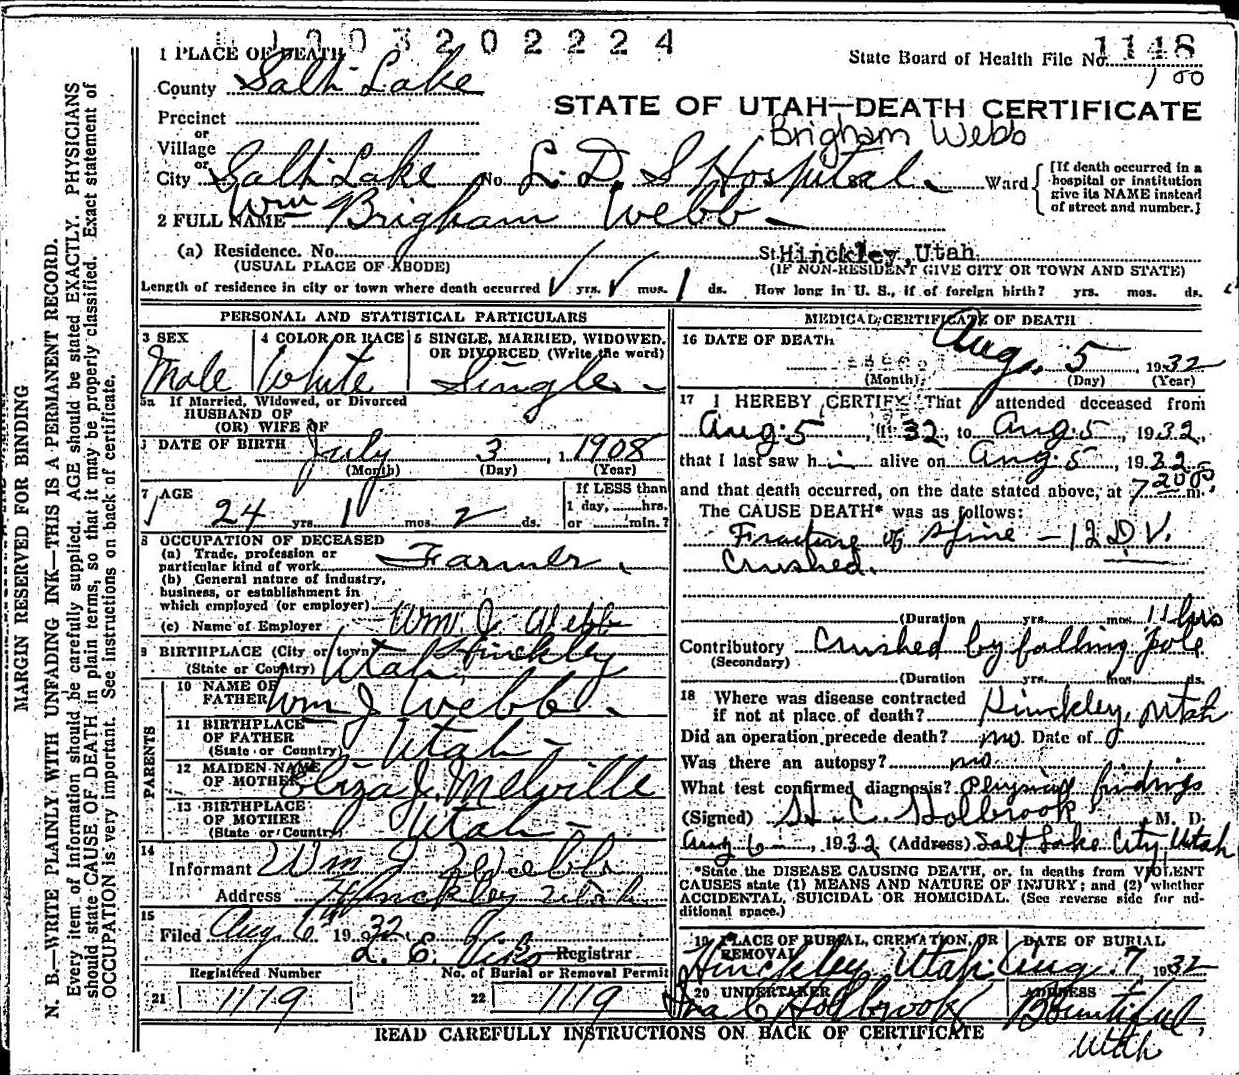 1003202224
1 PLACE OF DEATH
State Board of Health File No. 1148
100
County Salt Lake
STATE OF UTAH—DEATH CERTIFICATE
Precinct
or
Village
Brigham Webb
or
City Salt Lake No. L. D. S Hospital St. Ward
[If death occurred in a hospital or institution give its NAME instead of street and number.]
2 FULL NAME Wm Brigham Webb
(a) Residence. No. St. Hinckley, Utah
(USUAL PLACE OF ABODE) (IF NON-RESIDENT GIVE CITY OR TOWN AND STATE)
Length of residence in city or town where death occurred yrs. mos. 1 ds. How long in U. S., if of foreign birth? yrs. mos. ds.
MARGIN RESERVED FOR BINDING
N. B.—WRITE PLAINLY WITH UNFADING INK—THIS IS A PERMANENT RECORD.
Every item of information should be carefully supplied. AGE should be stated EXACTLY. PHYSICIANS
should state CAUSE OF DEATH in plain terms, so that it may be properly classified. Exact statement of
OCCUPATION is very important. See instructions on back of certificate.
PERSONAL AND STATISTICAL PARTICULARS
3 SEX
Male
4 COLOR OR RACE
White
5 SINGLE, MARRIED, WIDOWED,
OR DIVORCED (Write the word)
Single
5a If Married, Widowed, or Divorced
HUSBAND OF
(OR) WIFE OF
DATE OF BIRTH July 3, 1908
(Month) (Day) (Year)
7 AGE
24 yrs. 1 mos. 2 ds.
If LESS than
1 day, hrs.
or min.?
8 OCCUPATION OF DECEASED
(a) Trade, profession or
particular kind of work Farmer
(b) General nature of industry,
business, or establishment in
which employed (or employer)
(c) Name of Employer Wm. J. Webb
9 BIRTHPLACE (City or town) Hinckley
(State or Country) Utah
PARENTS
10 NAME OF
FATHER Wm J Webb
11 BIRTHPLACE
OF FATHER
(State or Country) Utah
12 MAIDEN NAME
OF MOTHER Eliza J. Melville
13 BIRTHPLACE
OF MOTHER
(State or Country) Utah
14
Informant Wm J Webb
Address Hinckley Utah
15
Filed Aug 6th 1932
Registrar
Registered Number No. of Burial or Removal Permit
21 1119 22 1119
MEDICAL CERTIFICATE OF DEATH
16 DATE OF DEATH
Aug. 5 1932
(Month) (Day) (Year)
17 I HEREBY CERTIFY That I attended deceased from
Aug. 5, 1932, to Aug. 5, 1932,
that I last saw him alive on Aug. 5, 1932
and that death occurred, on the date stated above, at 7 20 p m.
The CAUSE DEATH* was as follows:
Fracture of Spine – 12 D. V.
Crushed.
(Duration yrs. mos. 11 hrs
Contributory Crushed by falling Pole
(Secondary)
(Duration yrs. mos. ds.
18 Where was disease contracted
if not at place of death? Hinckley, Utah
Did an operation precede death? no. Date of
Was there an autopsy? no.
What test confirmed diagnosis? Physical findings
(Signed) H. C. Holbrook, M. D.
Aug 6, 1932 (Address) Salt Lake City, Utah
*State the DISEASE CAUSING DEATH, or, in deaths from VIOLENT
CAUSES state (1) MEANS AND NATURE OF INJURY; and (2) whether
ACCIDENTAL, SUICIDAL OR HOMICIDAL. (See reverse side for ad-
ditional space.)
19 PLACE OF BURIAL, CREMATION, OR
REMOVAL
Hinckley Utah
DATE OF BURIAL
Aug. 7, 1932
20 UNDERTAKER
Ira C Holbrook
ADDRESS
Bountiful,
Utah
READ CAREFULLY INSTRUCTIONS ON BACK OF CERTIFICATE